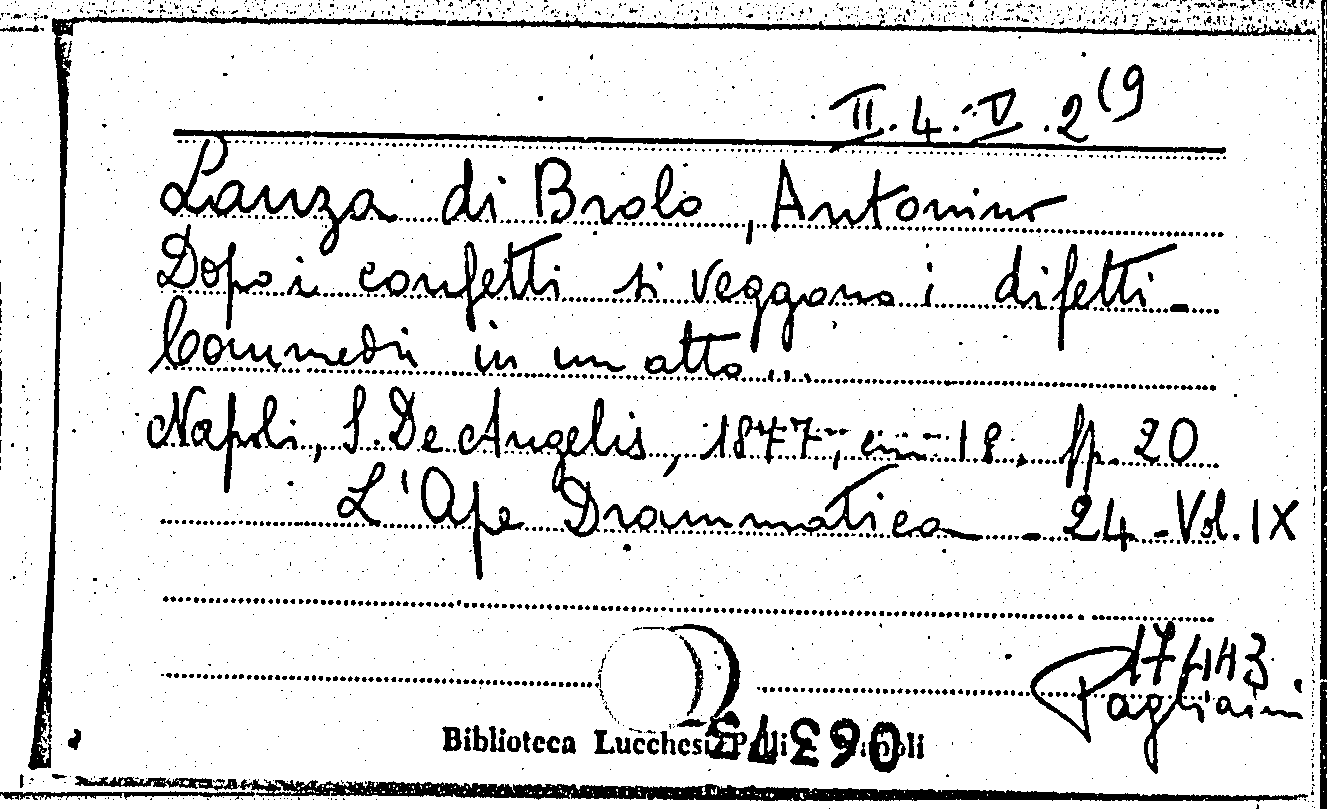 II.4.V.2(9
Lanza di Brolo, Antonino
Dopo i confetti si veggono i difetti -
Commedia in un atto...
Napoli, S. De Angelis, 1847, in 18. pp. 20
L'Ape Drammatica - 24 - Vol. IX
17443
Pagliaini
Biblioteca Lucchesi Palli - Napoli